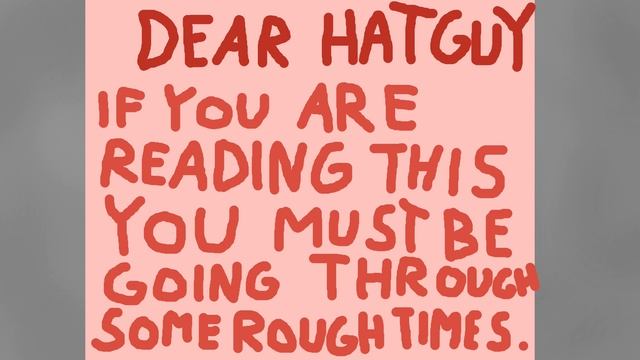 DEAR HATGUY
IF YOU ARE
READING THIS
YOU MUST BE
GOING THROUGH
SOME ROUGH TIMES.